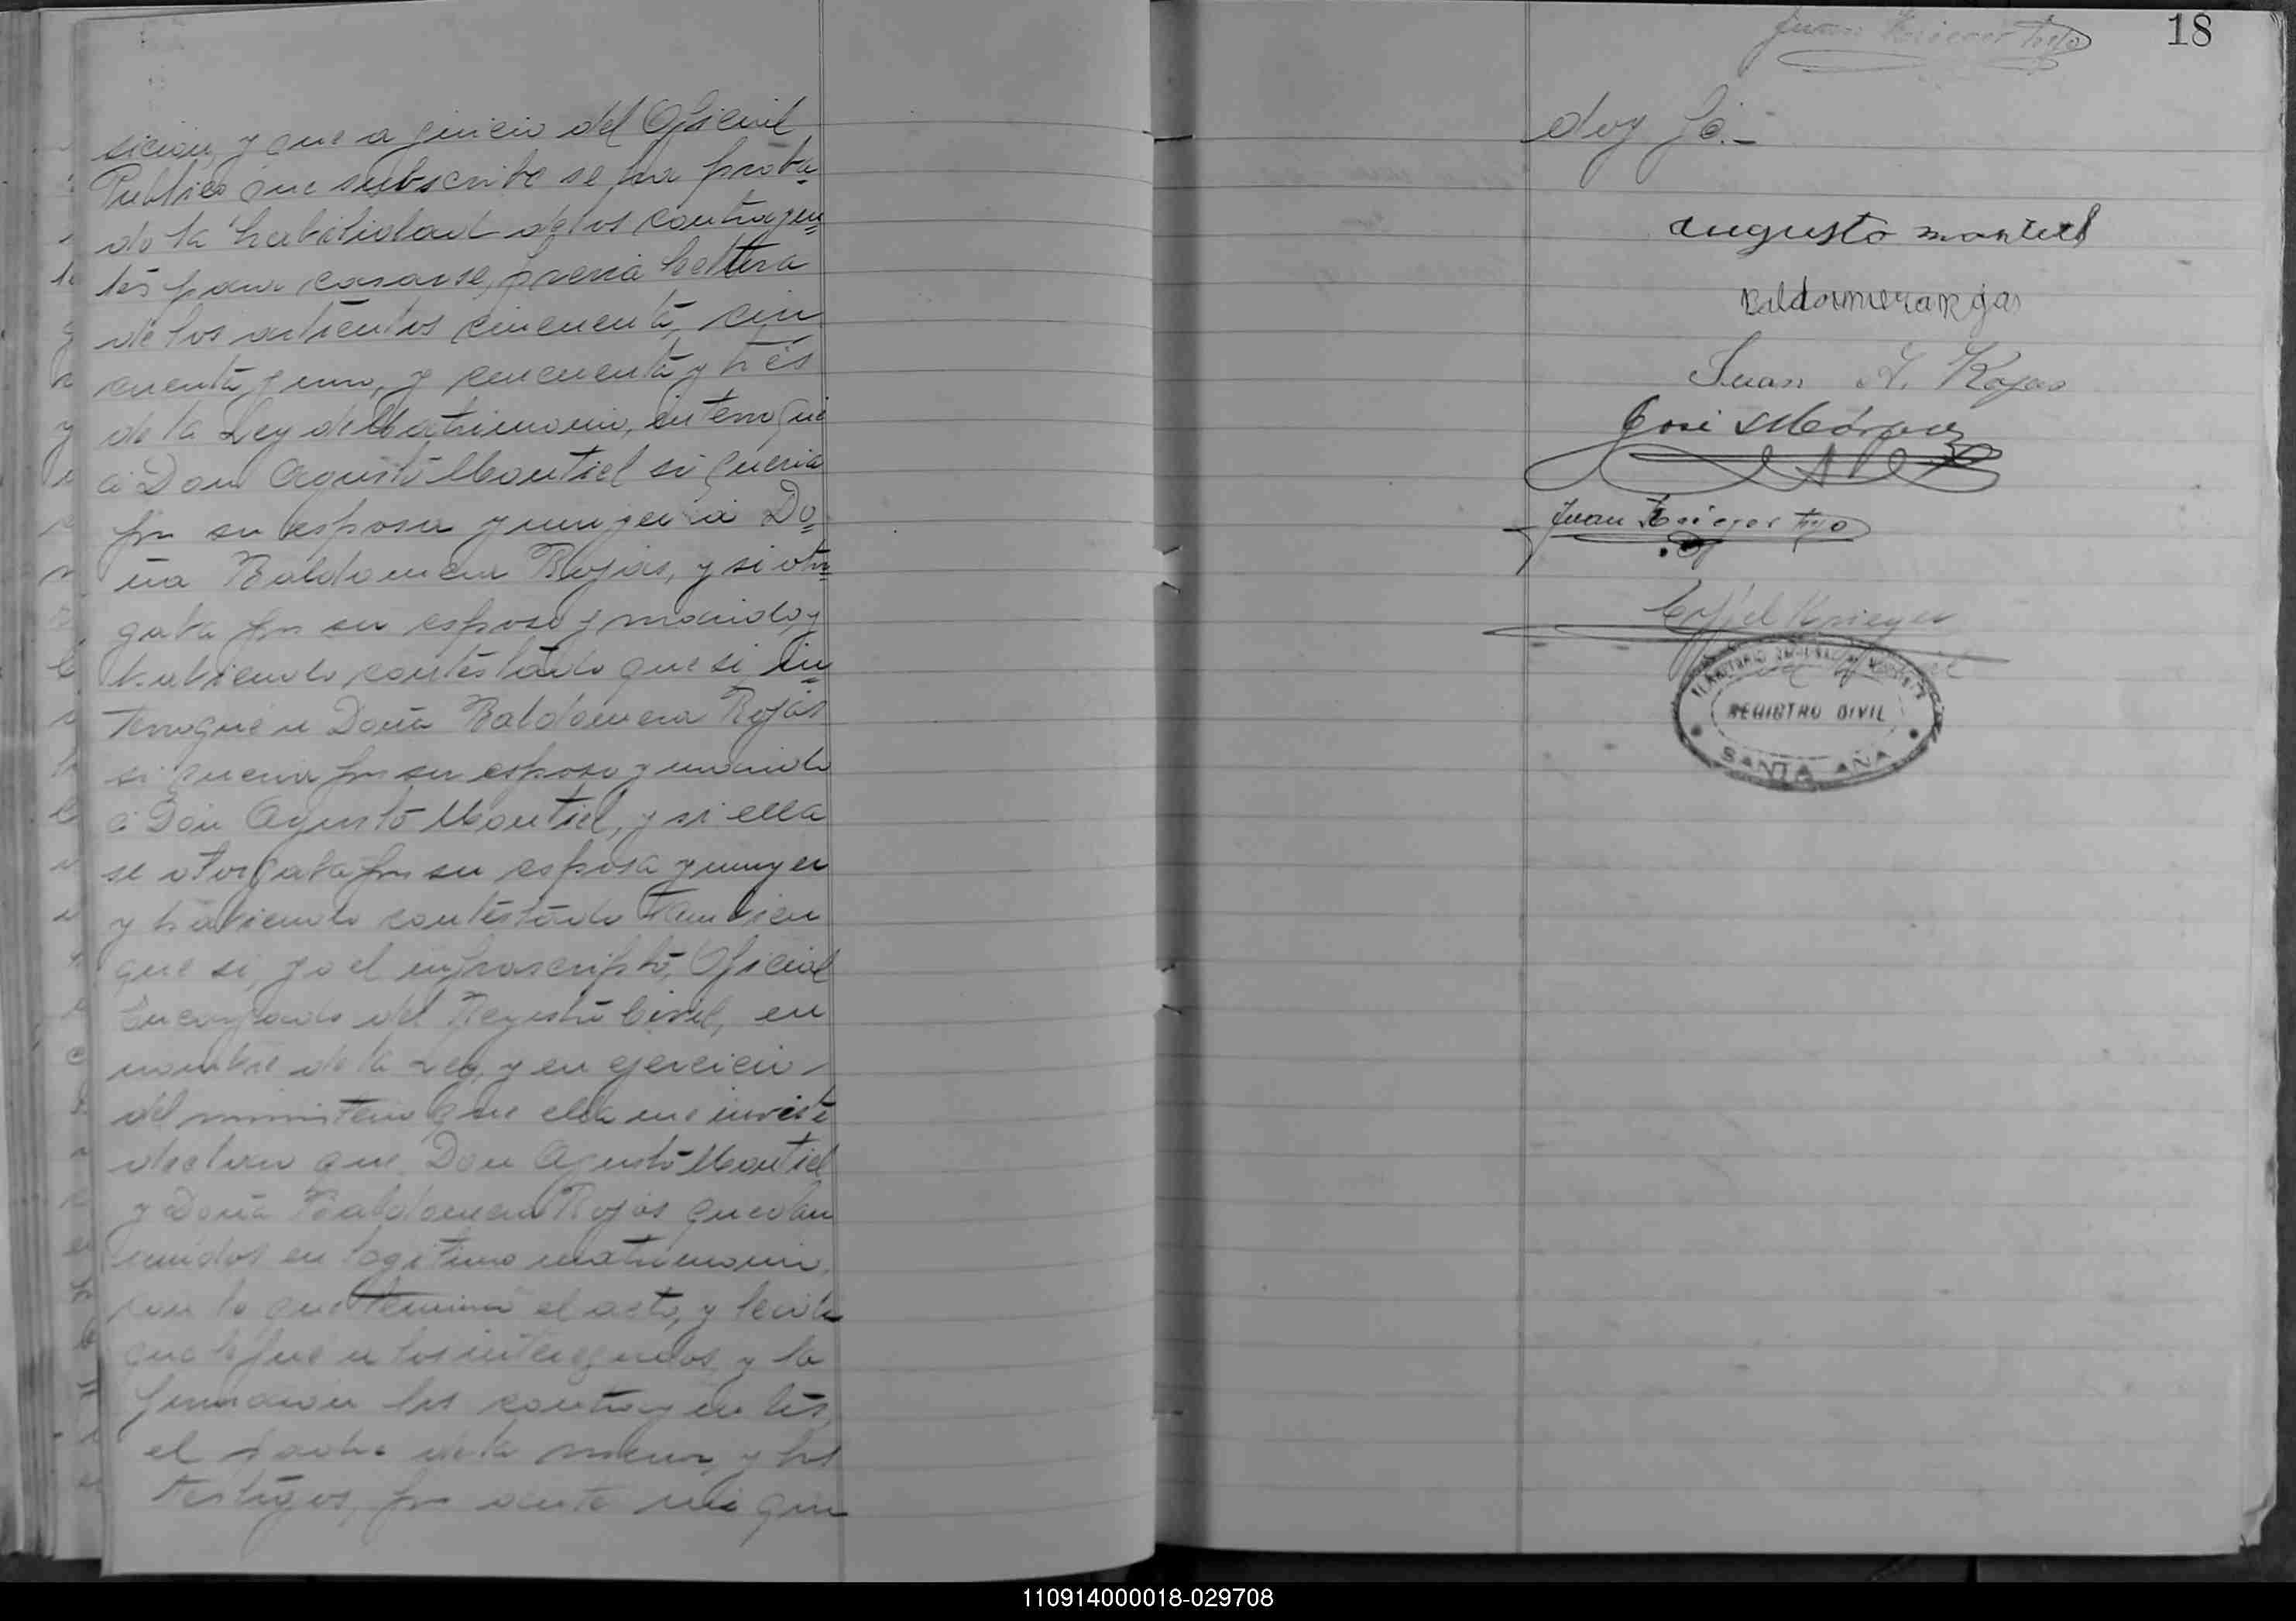 sicion, y que a juicio del Oficial
Publico que subscribe se ha proba-
do la habilidad de los contrayen-
tes para casarse, previa lectura
de los articulos cincuenta, cin
cuenta y uno, y cincuenta y tres
de la Ley de Matrimonio, interrogué
á Don Agusto Montiel si queria
por su esposa y mujer á Do-
ña Baldomera Rojas, y si otor-
gaba por su esposo y marido, y
habiendo contestado que si, in-
terrogué a Doña Baldomera Rojas
si queria por su esposo y marido
á Don Agusto Montiel, y si ella
se otorgaba por su esposa y mujer
y habiendo contestado tambien
que si, yo el infrascripto, Oficial
Encargado del Registro Civil, en
nombre de la Ley, y en ejercicio
del ministerio que ella me inviste
declaro que Don Agusto Montiel
y Doña Baldomera Rojas quedan
unidos en legitimo matrimonio,
con lo que terminó el acto, y leida
que le fue a los interesados, y la
firmaron los contrayentes,
el padre de la menor, y los
testigos, por ante mi que
Juan Krieger hijo
18
doy fé.-
Augusto montiel
Baldomera Rojas
Juan A. Rojas
José
Juan Krieger hijo
Krieger
REGISTRO CIVIL
SANTA ANA
110914000018-029708